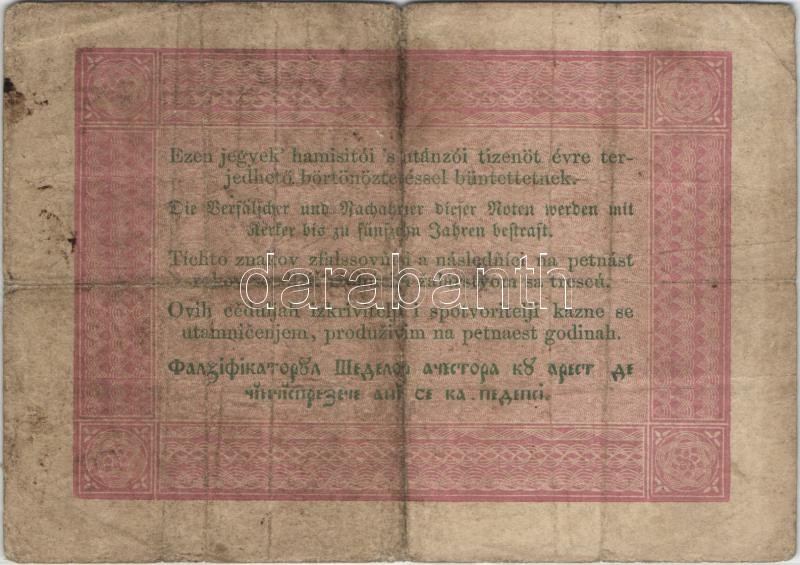 Ezen jegyek' hamisitói 's utánzói tizenöt évre ter-
jedhető börtönöztetéssel büntettetnek.
Die Verfälscher und Nachahmer dieser Noten werden mit
Kerker bis zu fünfzehn Jahren bestraft.
Tichto znakov zfalssovńíci a následńíci na petnást
sa trescú.
darabanth
Ovih céduljah izkrivitelji i spotvoritelji kazne se
utamničenjem, produživim na petnaest godinah.
Фалзіфікаторꙋл Шеделор ачестора кꙋ арест де
ані се ва педепсі.